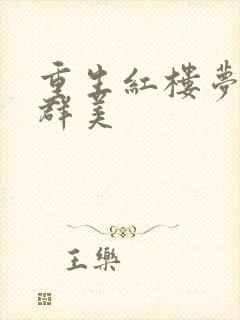 重生紅樓夢
群美
王樂